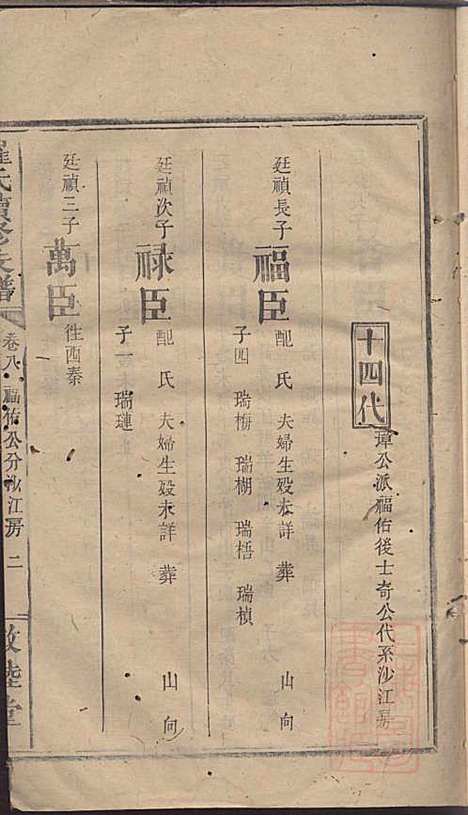 十四代
璋公派福佑後士奇公代系沙江房
廷禎長子
福臣
配 氏 夫婦生殁未詳 葬 山 向
子四 瑞梅 瑞楜 瑞梧 瑞楨
廷禎次子
禄臣
配 氏 夫婦生殁未詳 葬 山 向
子一 瑞璉
廷禎三子
萬臣
徃西秦
氏續修支譜
卷八 福佑公分沙江房 二
敦睦堂